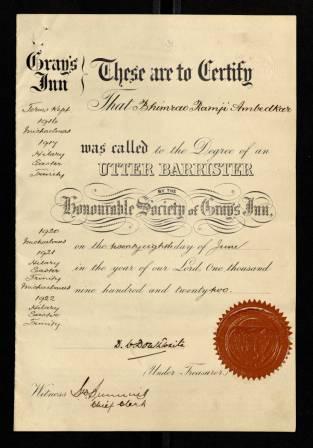 Gray's
Inn
These are to Certify
Terms Kept
1916
Michaelmas
1917
Hilary
Easter
Trinity
That Bhimrao Ramji Ambedkar
was called to the Degree of an
UTTER BARRISTER
BY THE
Honourable Society of Gray's Inn,
1920
Michaelmas
1921
Hilary
Easter
Trinity
Michaelmas
1922
Hilary
Easter
Trinity
on the twenty eighth day of June
in the year of our Lord, One thousand
nine hundred and twenty two.
(Under Treasurer)
Witness
Chief Clerk